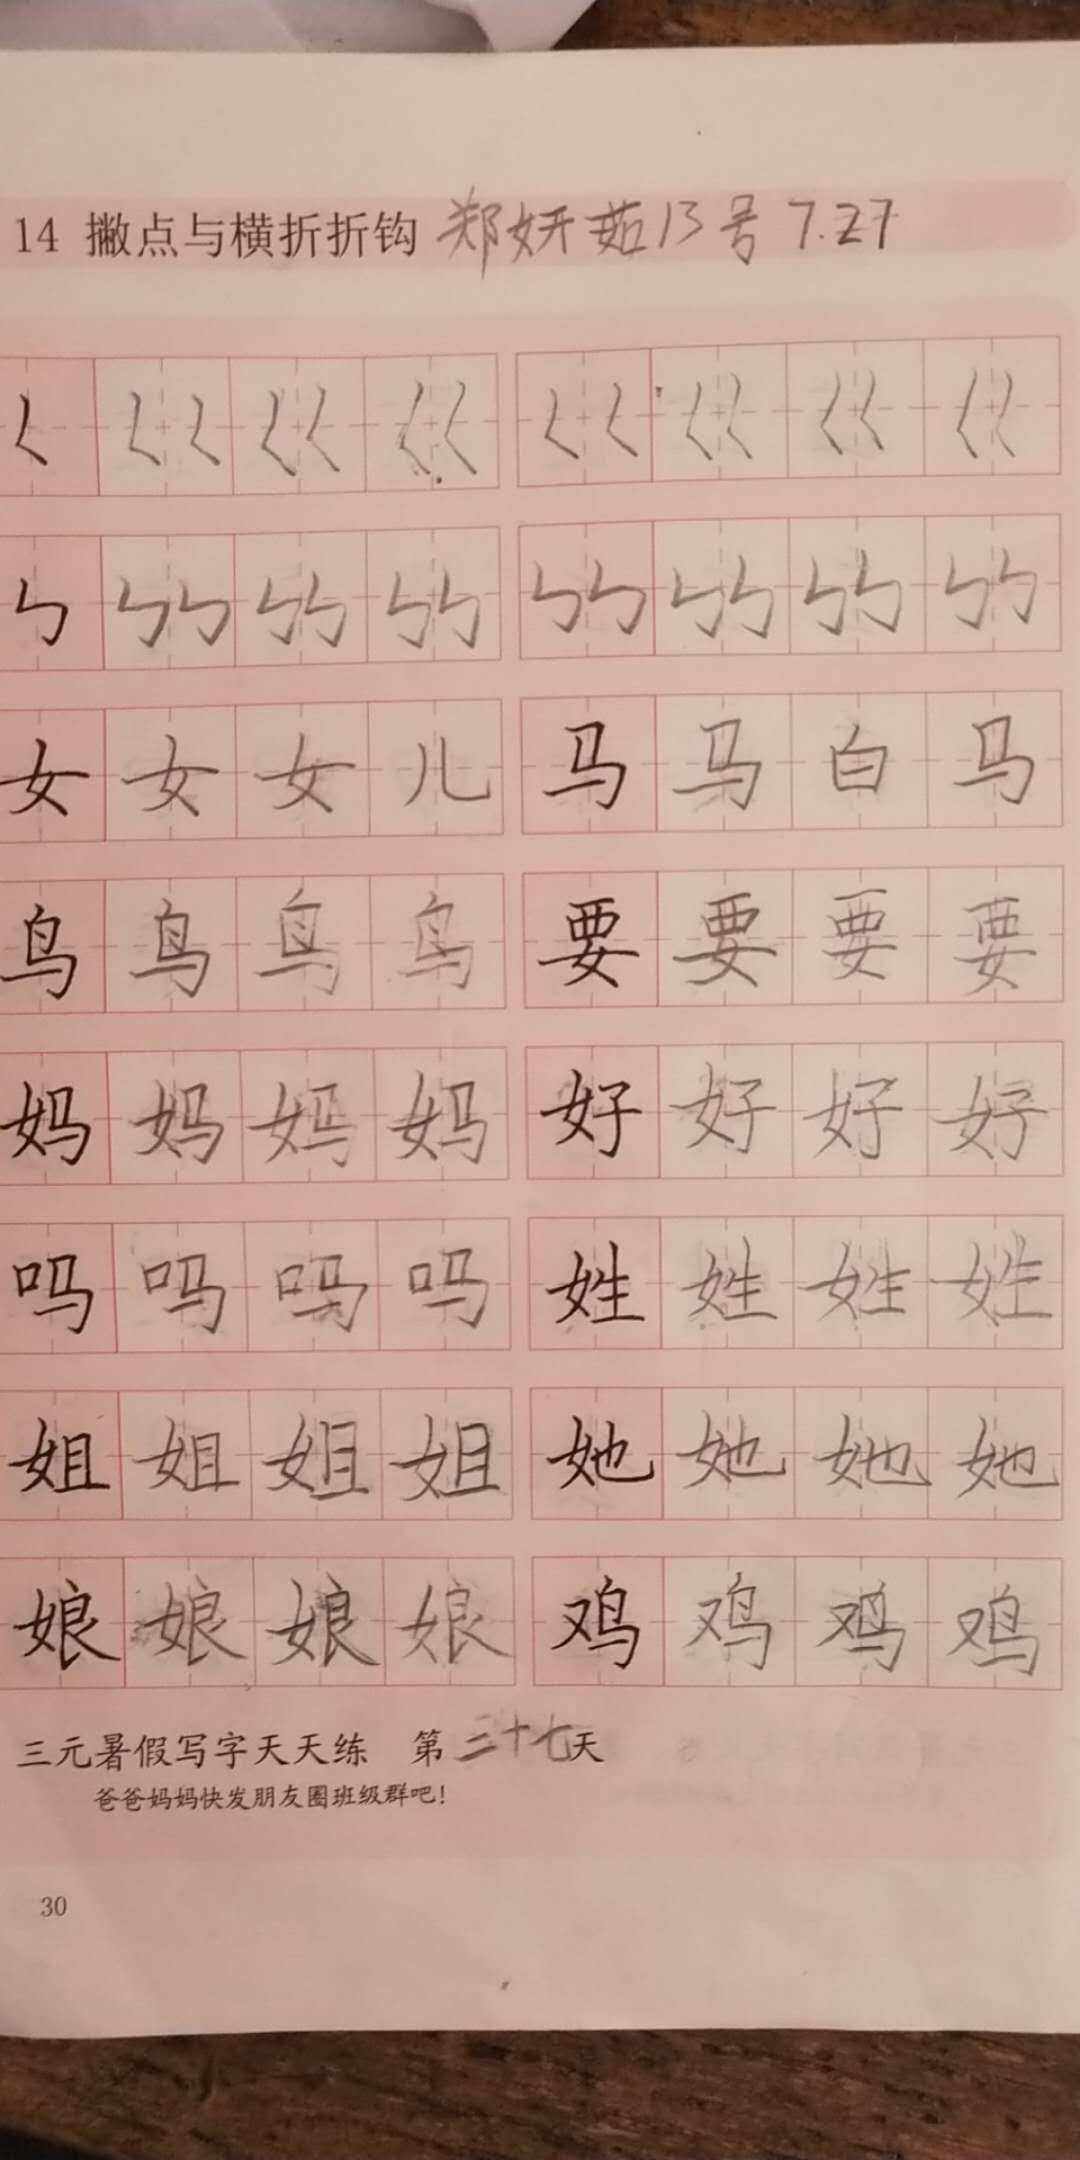 14 撇点与横折折钩 郑妍茹13号 7.27
𡿨 𡿨𡿨 𡿨𡿨 𡿨𡿨 𡿨𡿨 𡿨𡿨 𡿨𡿨 𡿨𡿨
女 女 女 儿 马 马 白 马
鸟 鸟 鸟 鸟 要 要 要 要
妈 妈 妈 妈 好 好 好 好
吗 吗 吗 吗 姓 姓 姓 姓
姐 姐 姐 姐 她 她 她 她
娘 娘 娘 娘 鸡 鸡 鸡 鸡
三元暑假写字天天练 第三十七天
爸爸妈妈快发朋友圈班级群吧!
30